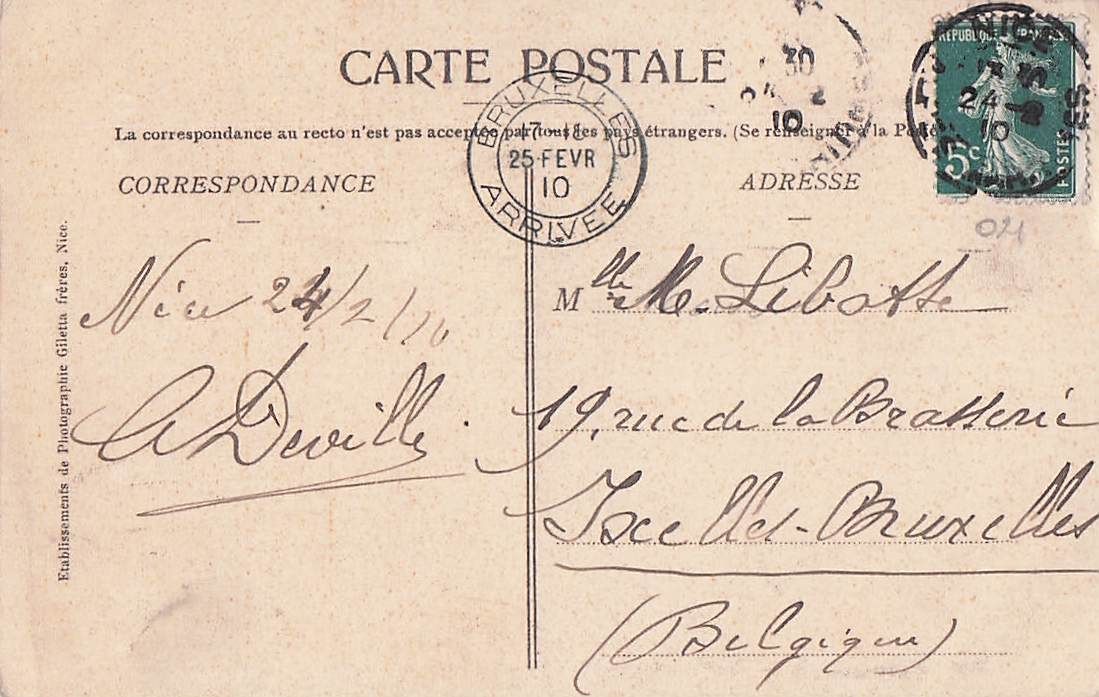 CARTE POSTALE
La correspondance au recto n'est pas acceptée par tous les pays étrangers. (Se renseigner à la Poste
CORRESPONDANCE
ADRESSE
BRUXELLES
17-18
25 FEVR
10
ARRIVÉE
30
10
REPUBLIQUE FRANÇAISE
24
10
5c
POSTES
021
Etablissements de Photographie Giletta frères, Nice.
Nice 24/2/10
A Deville
Mlle M. Libotte
19, rue de la Brasserie
Ixelles-Bruxelles
(Belgique)